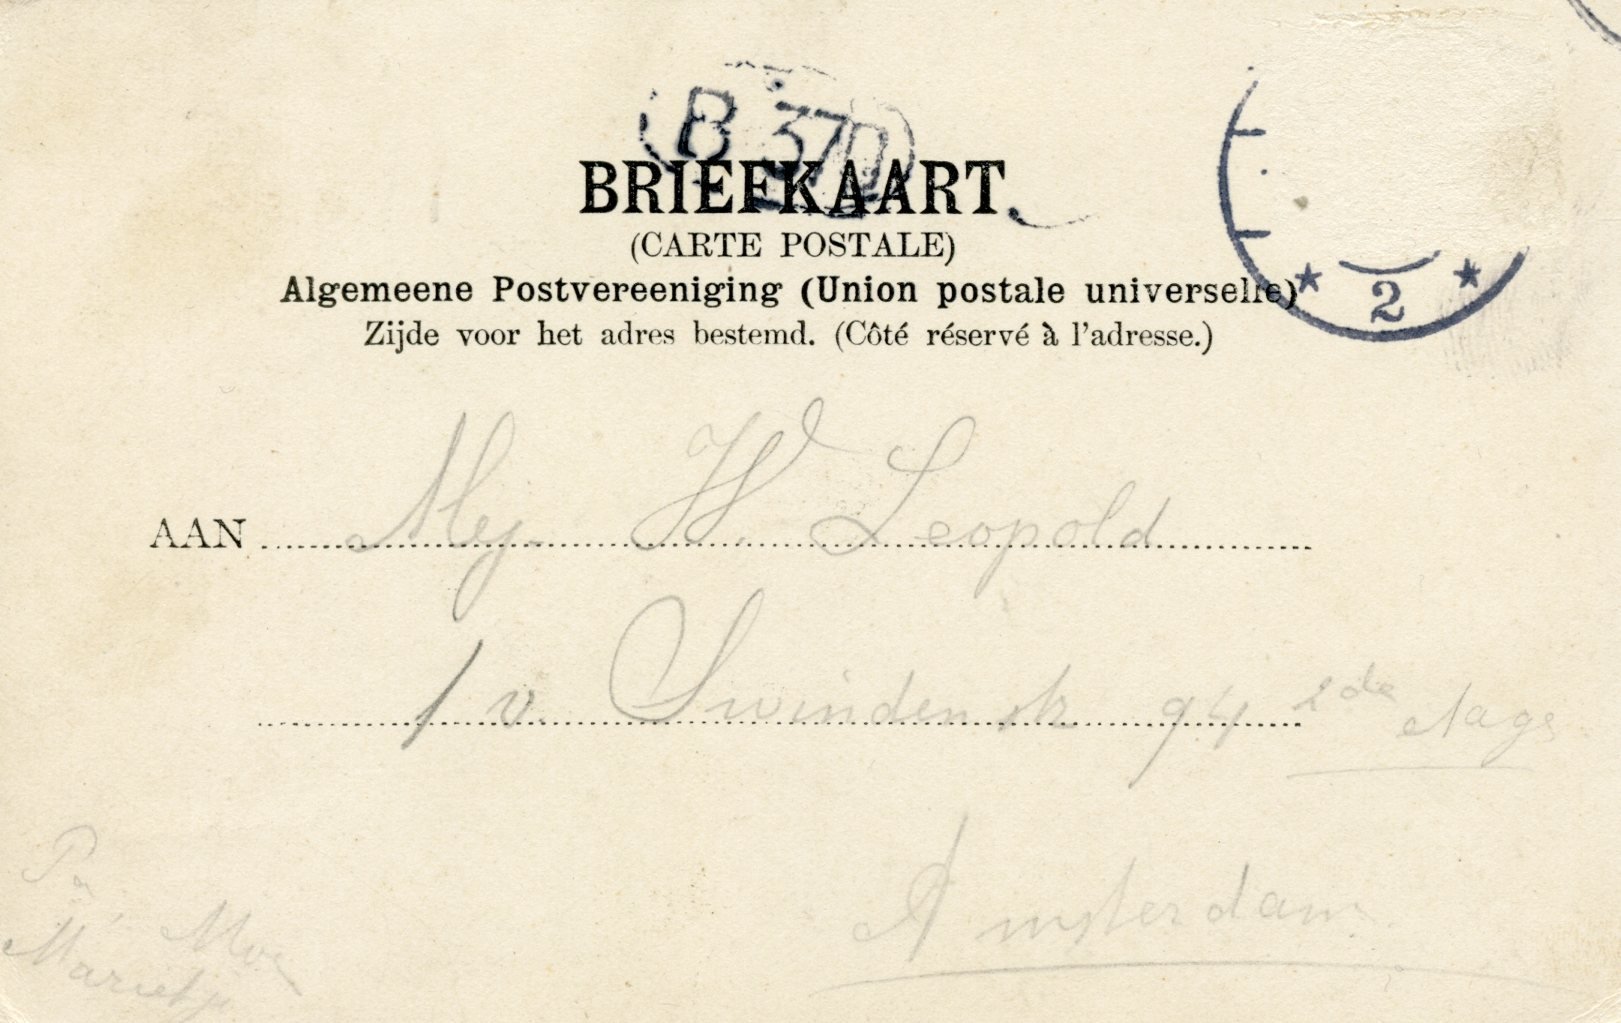 B 370
BRIEFKAART.
(CARTE POSTALE)
Algemeene Postvereeniging (Union postale universelle)
2
Zijde voor het adres bestemd. (Côté réservé à l'adresse.)
AAN Mej. W. Leopold
1 v. Swinden str 94 2de etage
Amsterdam
Pa, Moe
Marietje